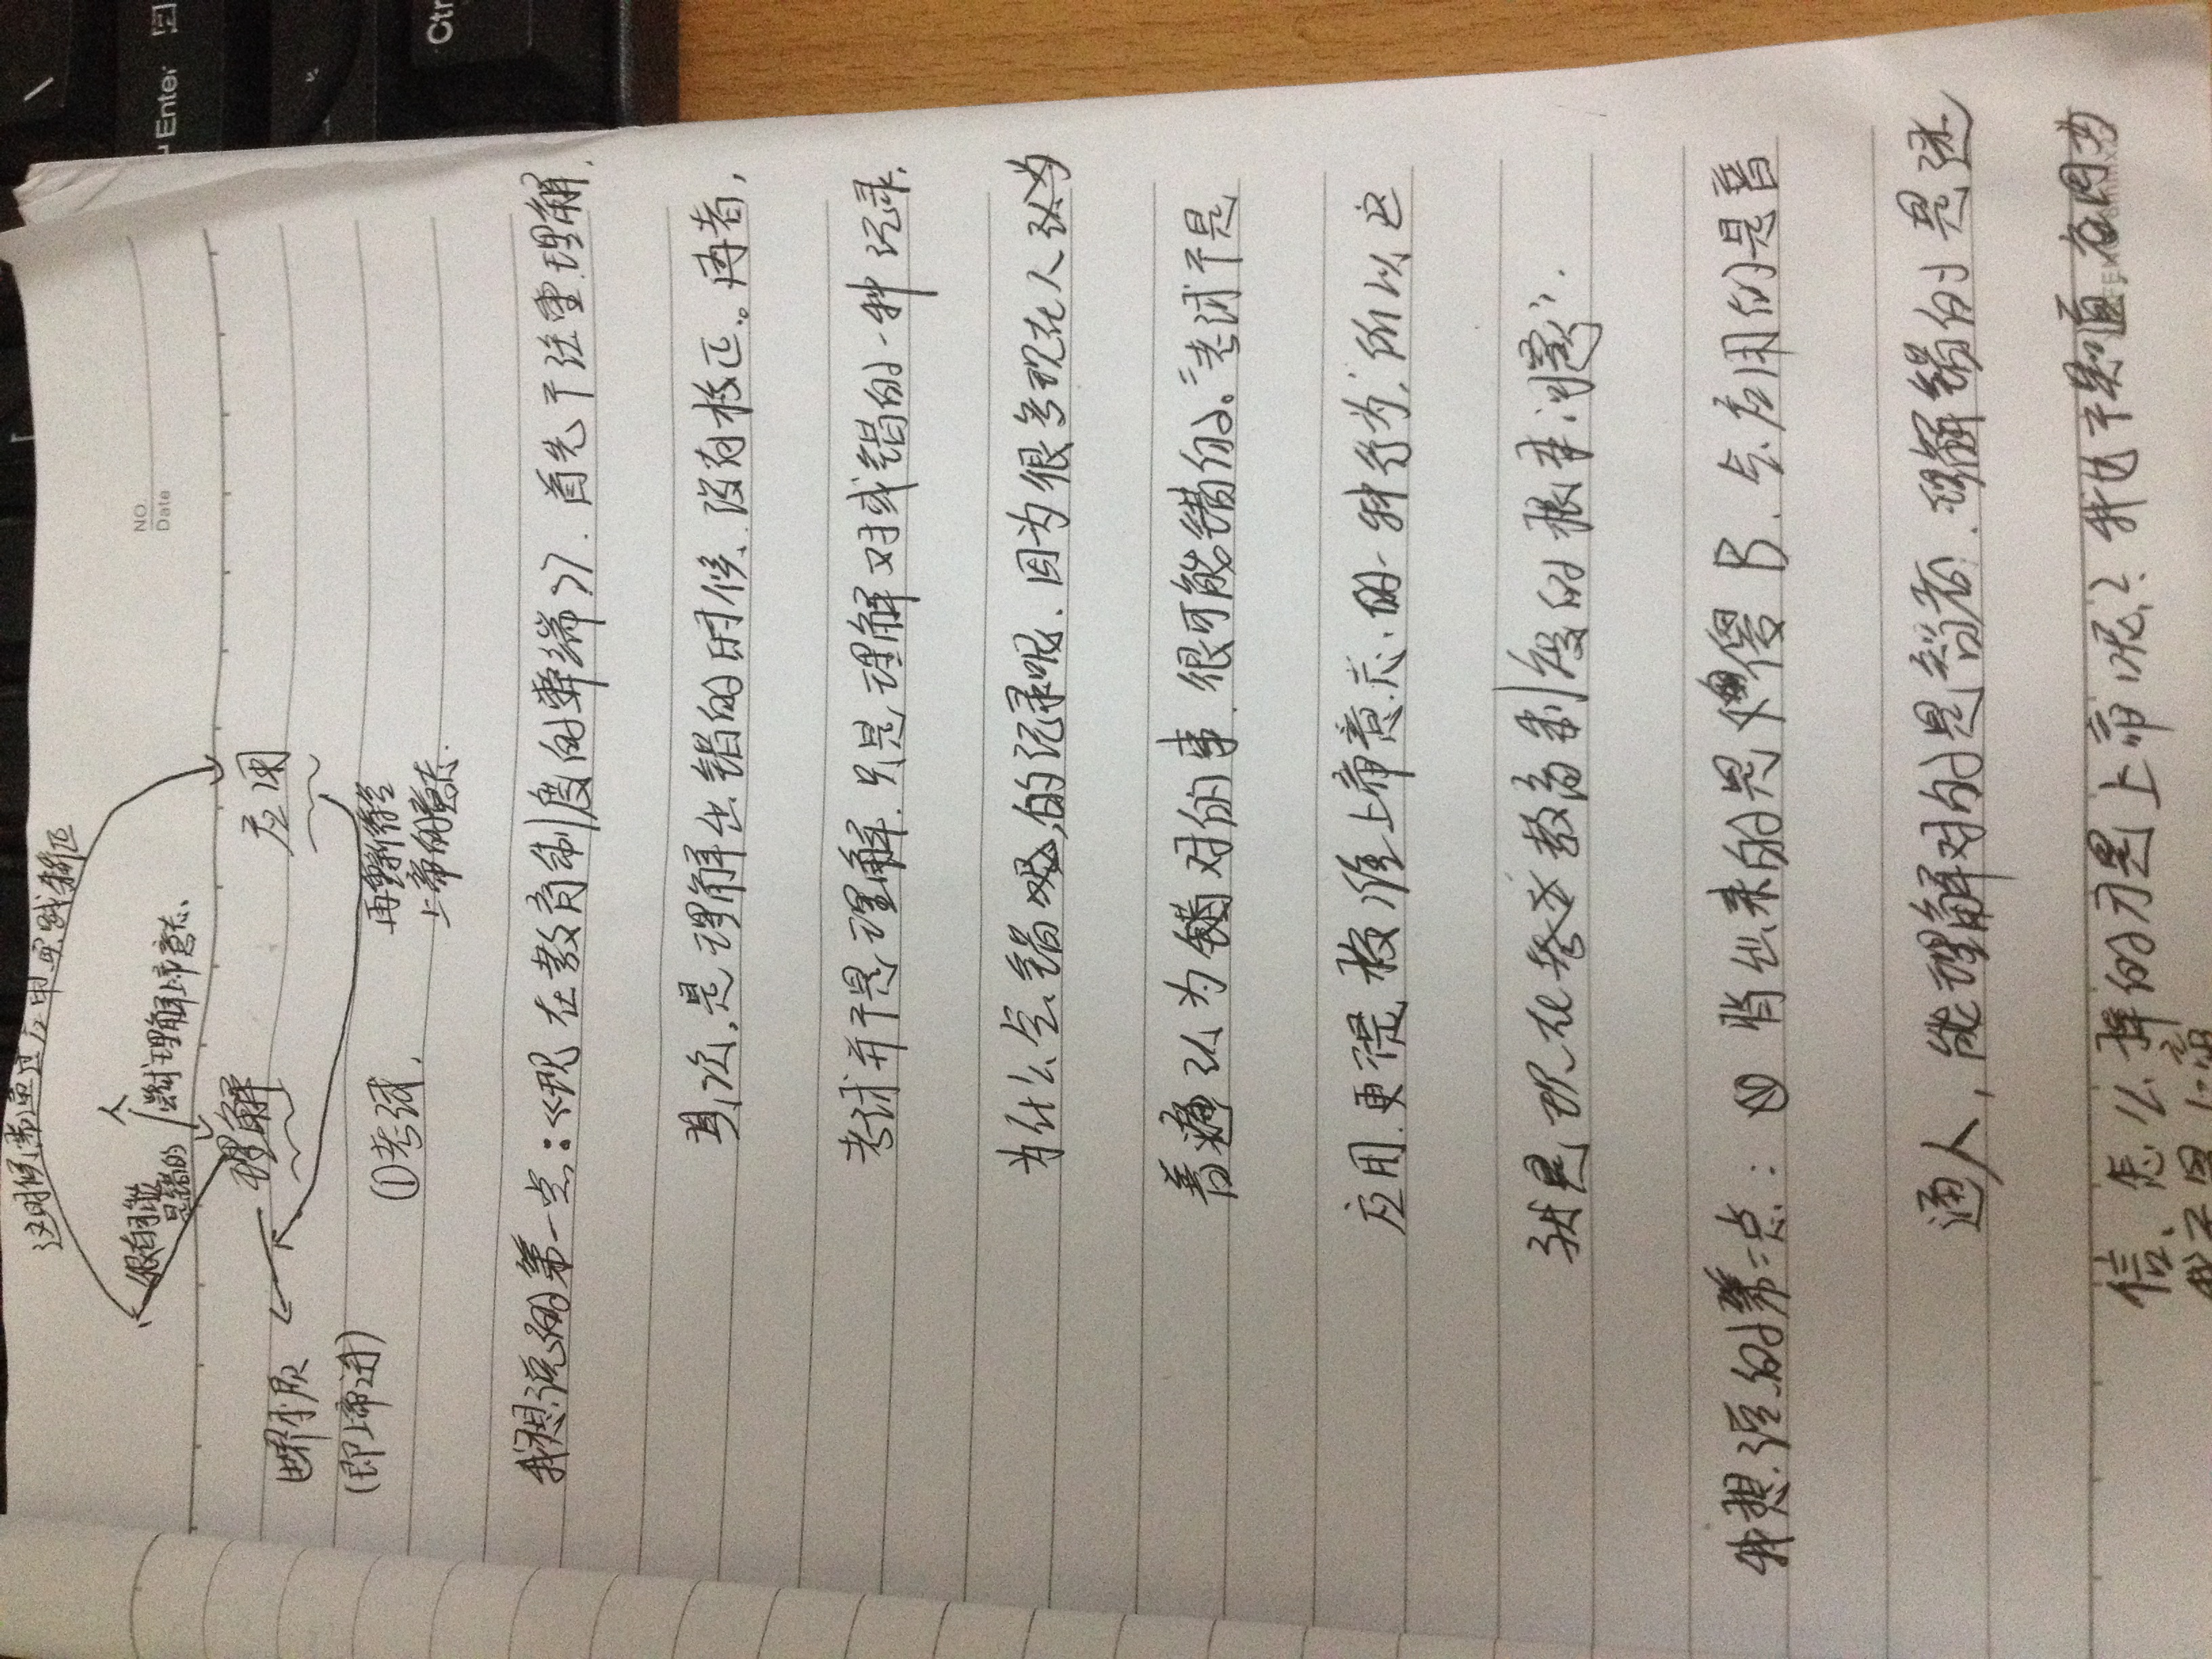 这时候,需通过应用实践矫正
人
很有可能
是错的
尝试理解上帝意志、
NO.
Date
Enter
理解
应用
世界本质
(即上帝
①考试,
再重新符合
上帝的意志.
Ctr
我想说的第一点:《现在教育制度的弊端》. 首先不注重理解,
其次,是理解出错的时候、没有校正。再者,
考试并不是理解.只是理解对或错的一种记录,
为什么会错的记录呢、因为很多现在人认为
普遍认为对的事、很可能错的。"考试不是
应用.更不是校准上帝意志、的一种行为,所以这
就是现在教育制度的根本问题".
我想说的第二点: 背出来的是傻B、会应用的是普
通人,能理解对的是智者、理解错的是迷
信、怎么样的才是上帝呢,?我也不知道,因为
我不是上帝